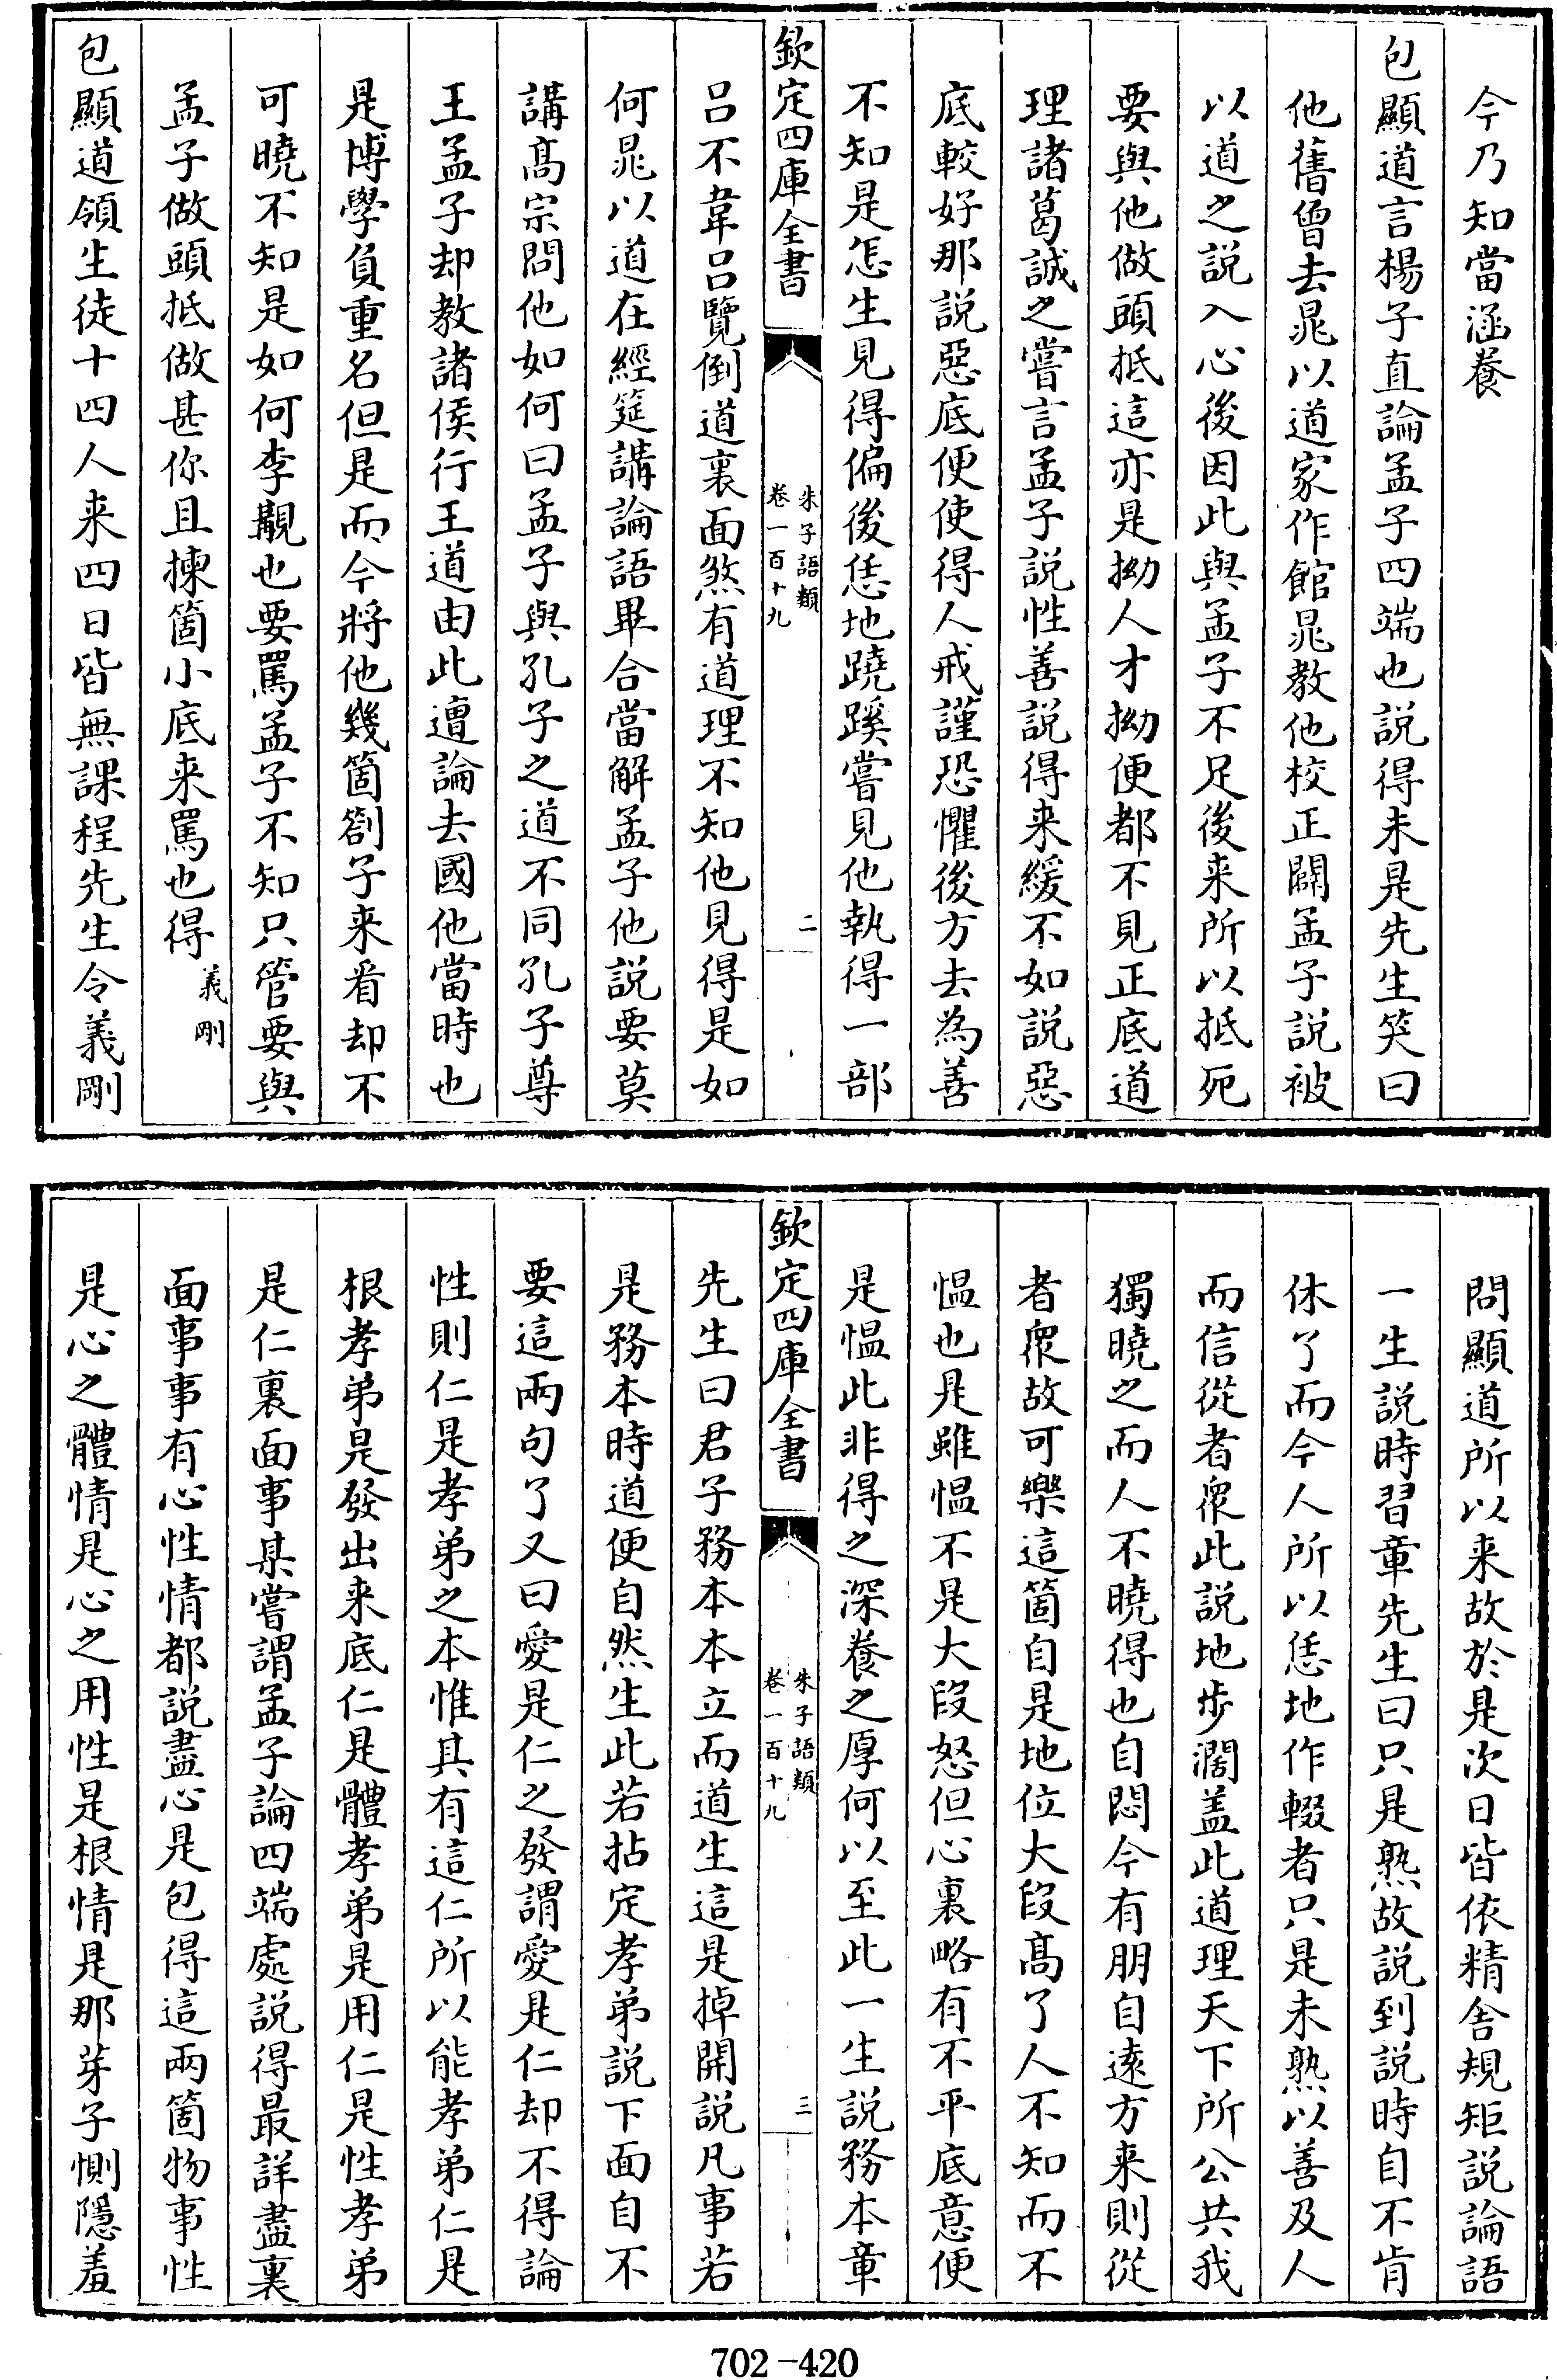 今乃知當涵養
包顯道言楊子直論孟子四端也説得未是先生笑曰
他舊曾去晁以道家作館晁教他校正闢孟子説被
以道之説入心後因此與孟子不足後来所以抵死
要與他做頭抵這亦是拗人才拗便都不見正底道
理諸葛誠之嘗言孟子説性善説得来緩不如説惡
底較好那説惡底便使得人戒謹恐懼後方去為善
不知是怎生見得偏後恁地蹺蹊嘗見他執得一部
欽定四庫全書
朱子語類
卷一百十九
二
吕不韋吕覽倒道裏面煞有道理不知他見得是如
何晁以道在經筵講論語畢合當解孟子他説要莫
講髙宗問他如何曰孟子與孔子之道不同孔子尊
王孟子却教諸侯行王道由此遭論去國他當時也
是博學負重名但是而今將他幾箇劄子来看却不
可曉不知是如何李覯也要罵孟子不知只管要與
孟子做頭抵做甚你且揀箇小底来罵也得義剛
包顯道領生徒十四人来四日皆無課程先生令義剛
問顯道所以来故於是次日皆依精舍規矩説論語
一生説時習章先生曰只是熟故説到説時自不肯
休了而今人所以恁地作輟者只是未熟以善及人
而信從者衆此説地步濶盖此道理天下所公共我
獨曉之而人不曉得也自悶今有朋自逺方来則從
者衆故可樂這箇自是地位大段髙了人不知而不
愠也是雖愠不是大段怒但心裏略有不平底意便
是愠此非得之深養之厚何以至此一生説務本章
欽定四庫全書
朱子語類
卷一百十九
三
先生曰君子務本本立而道生這是掉開説凡事若
是務本時道便自然生此若拈定孝弟説下面自不
要這兩句了又曰愛是仁之發謂愛是仁却不得論
性則仁是孝弟之本惟其有這仁所以能孝弟仁是
根孝弟是發出来底仁是體孝弟是用仁是性孝弟
是仁裏面事某嘗謂孟子論四端處説得最詳盡裏
面事事有心性情都説盡心是包得這兩箇物事性
是心之體情是心之用性是根情是那芽子惻隱羞
702-420